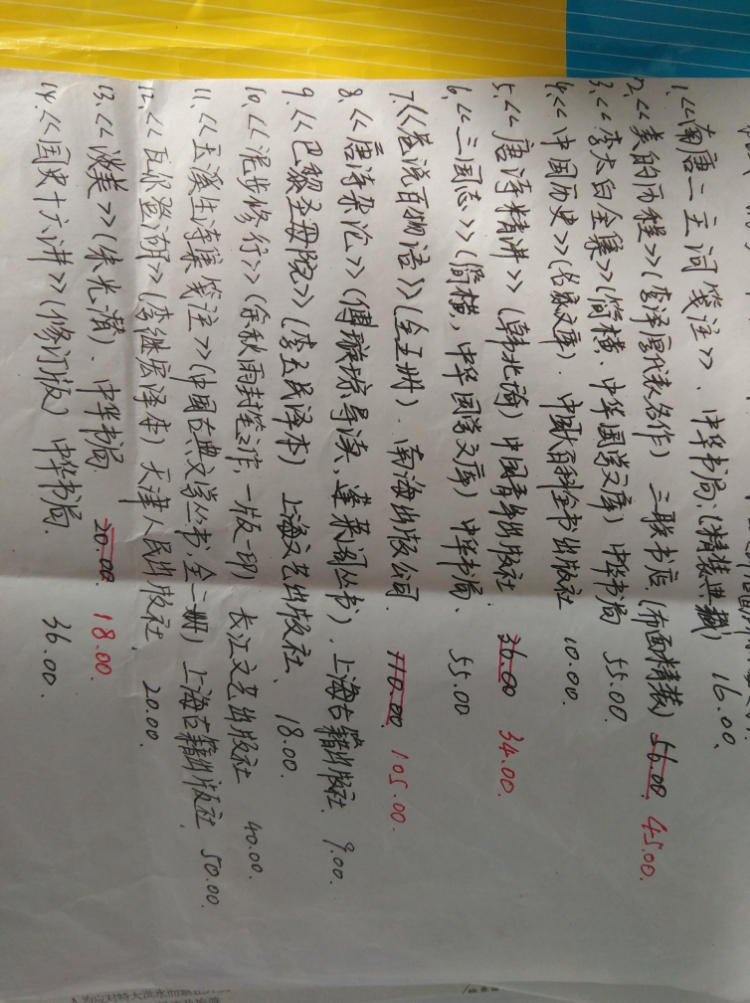 1.<<南唐二主词笺注>>、中华书局、(精装典藏) 16.00、
2.<<美的历程>>(李泽厚代表名作) 三联书店.(布面精装) 56.00. 45.00.
3.<<李太白全集>>(简横、中华国学文库) 中华书局 55.00.
4.<<中国历史>>(名家文库). 中国大百科全书出版社 10.00.
5.<<唐诗精讲>>(韩兆琦) 中国青年出版社. 36.00 34.00.
6.<<三国志>>(简横,中华国学文库) 中华书局、 55.00
7.<<巷说百物语>>(全五册). 南海出版公司. 110.00. 105.00.
8.<<唐诗杂论>>(傅璇琮导读、蓬莱阁丛书). 上海古籍出版社. 9.00.
9.<<巴黎圣母院>>(李玉民译本) 上海文艺出版社、 18.00.
10.<<泥步修行>>(余秋雨封笔之作,一版一印) 长江文艺出版社 40.00.
11.<<玉溪生诗集笺注>>(中国古典文学丛书,全二册) 上海古籍出版社. 50.00.
12.<<瓦尔登湖>>(李继宏译本) 天津人民出版社. 20.00.
13.<<谈美>>(朱光潜). 中华书局 20.00. 18.00.
14.<<国史十六讲>>(修订版) 中华书局. 36.00.